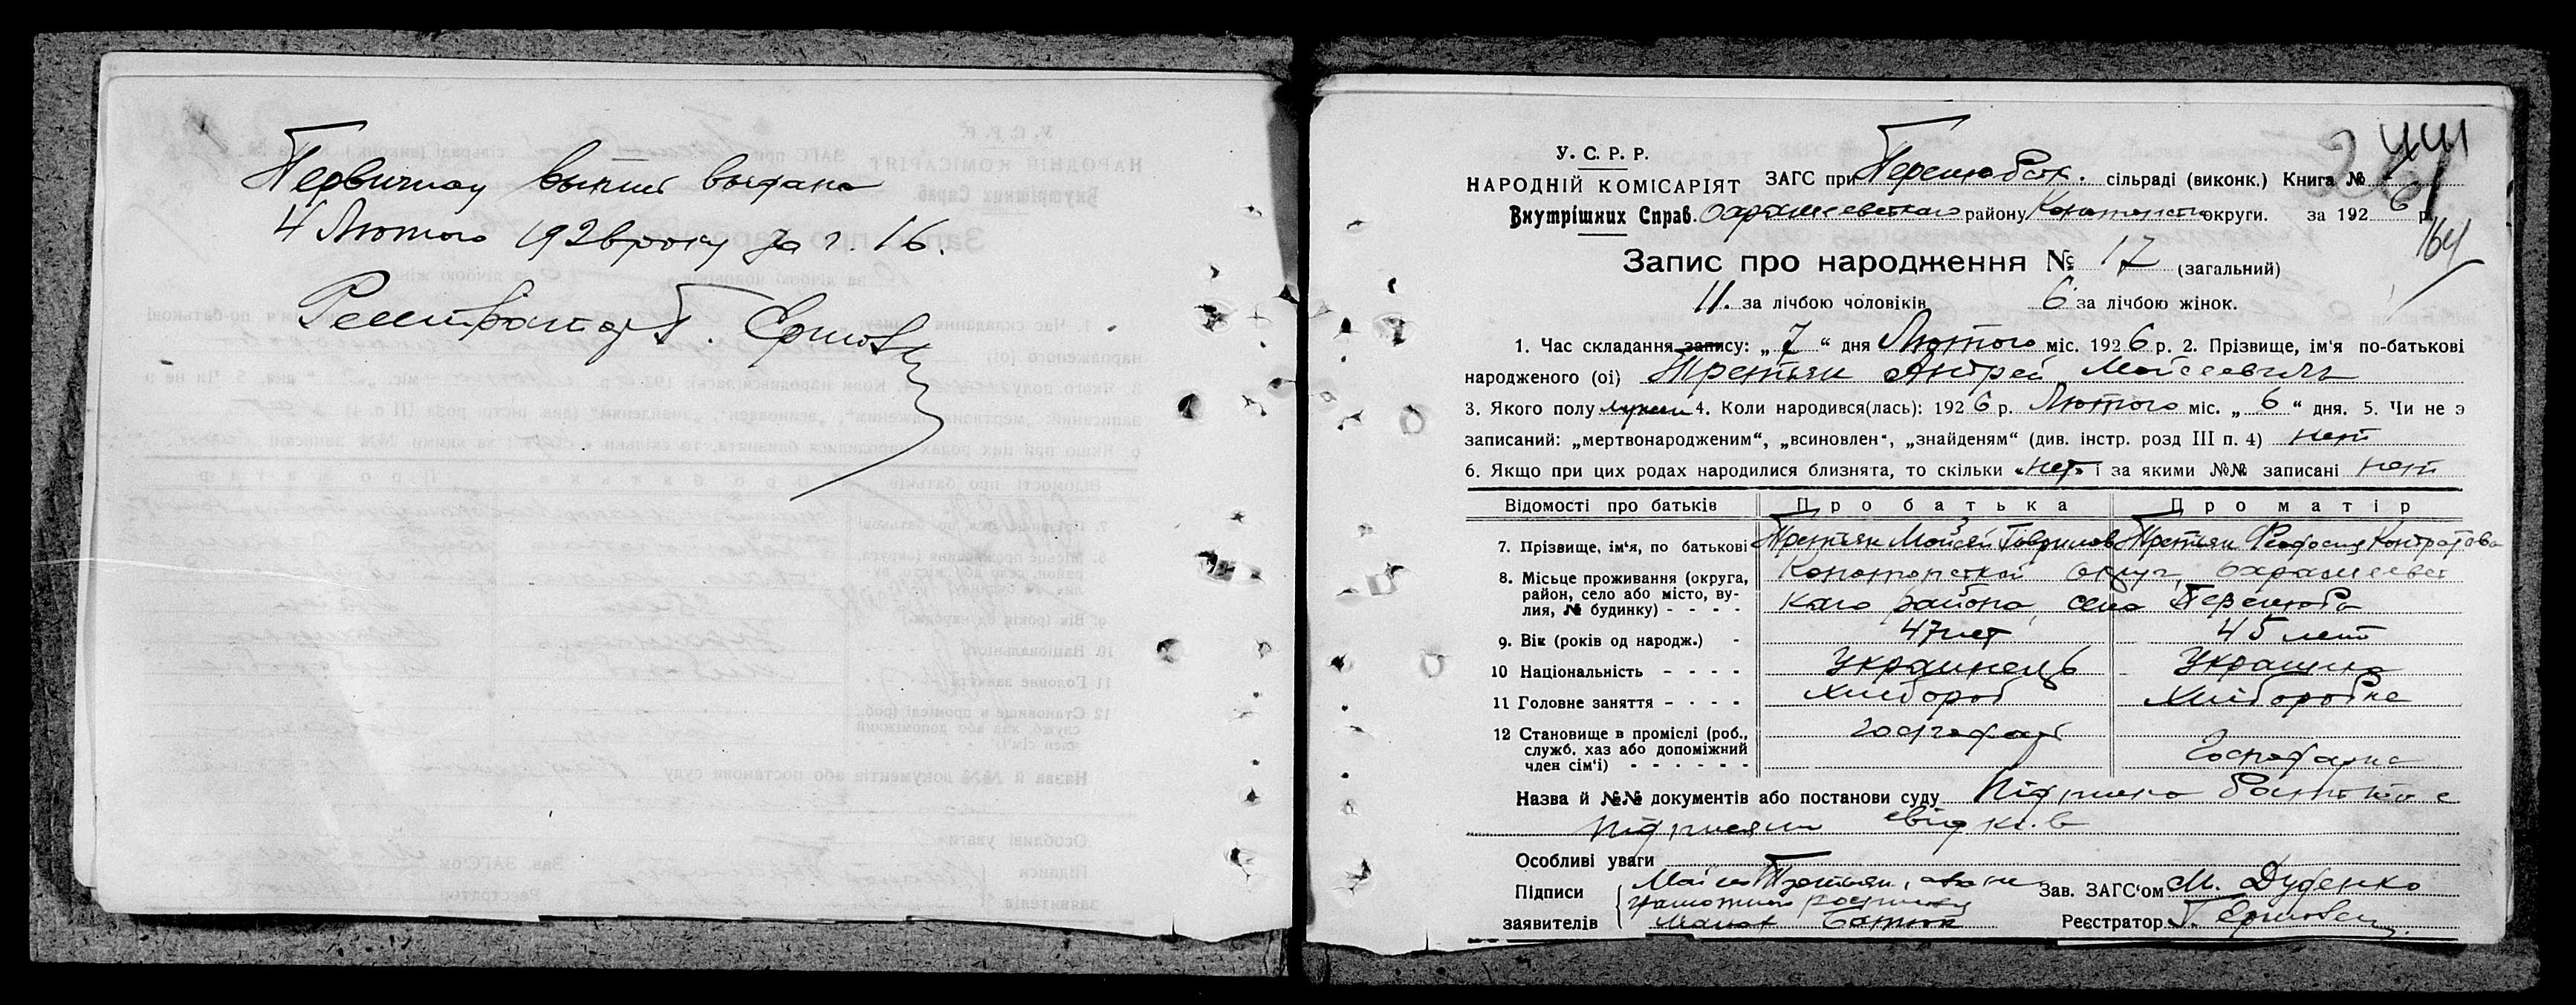 Первичная выпись выдана
4 Лютого 1926 року за г. 16.
Реестратор Г.
У. С. Р. Р.
НАРОДНІЙ КОМІСАРІЯТ
Внутрішних Справ.
ЗАГС при Перелюбск. сільраді (виконк.) Книга №
району Конотопской округи. за 1926 р.
441
164
Запис про народження № 17 (загальний)
11. за лічбою чоловіків 6 за лічбою жінок.
1. Час складання запису: „ 7 “ дня Лютого міс. 1926 р. 2. Прізвище, ім'я по-батькові
народженого (ої) Третьяк Андрей Мойсеевичь
3. Якого полу мужск 4. Коли народився(лась): 1926 р. Лютого міс. „ 6 “ дня. 5. Чи не э
записаний: „мертвонародженим“, „всиновлен“, „знайденям“ (див. інстр. розд III п. 4) нет
6. Якщо при цих родах народилися близнята, то скільки «нет» і за якими №№ записані нет
Відомості про батьків Про батька Про матір
7. Прізвище, ім'я, по батькові Третьяк Мойсей Гаврилов Третьяк Феодосия Контратова
8. Місьце проживання (округа, район, село або місто, вулия, № будинку) - - - - Конотопской округ,
каго района, села Перелюба
9. Вік (років од народж.) - 47 лет 45 лет
10 Національність - - - - Украинець Украинка
11 Головне заняття - - - - Хлибороб Хлиборобка
12 Становище в промислі (роб., служб, хаз або допоміжний член сім'ї) - - - - - - Господар Господарка
Назва й №№ документів або постанови суду Підписка с
підписями свідків
Особливі уваги
Підписи заявителів Мойсей Третьяк, а за не
грамотного росписався
Батюк
Зав. ЗАГС'ом М. Дубенко
Реєстратор Г.